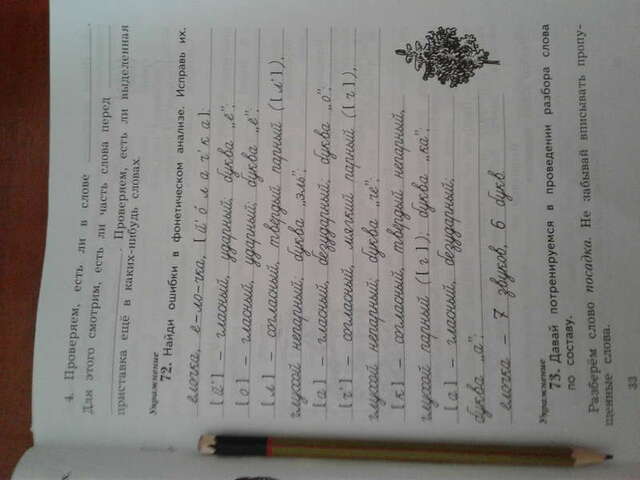 х.
4. Проверяем, есть ли в слове
Для этого смотрим, есть ли часть слова перед
. Проверяем, есть ли выделенная
приставка ещё в каких-нибудь словах.
Упражнение
72. Найди ошибки в фонетическом анализе. Исправь их.
елочка, е-ло-чка, [й' о́ л а ч' к а]:
[й'] – гласный, ударный; буква „е";
[о] – гласный, ударный; буква „е";
[л] – согласный, твёрдый парный ([л']),
глухой непарный; буква „эль";
[а] – гласный, безударный; буква „о";
[ч'] – согласный, мягкий парный ([ч]),
глухой непарный; буква „че";
[к] – согласный, твёрдый непарный,
глухой парный ([г]); буква „ка";
[а] – гласный, безударный;
буква „а";
елочка – 7 звуков, 6 букв.
Упражнение
73. Давай потренируемся в проведении разбора слова
по составу.
Разберём слово посадка. Не забывай вписывать пропу-
щенные слова.
33